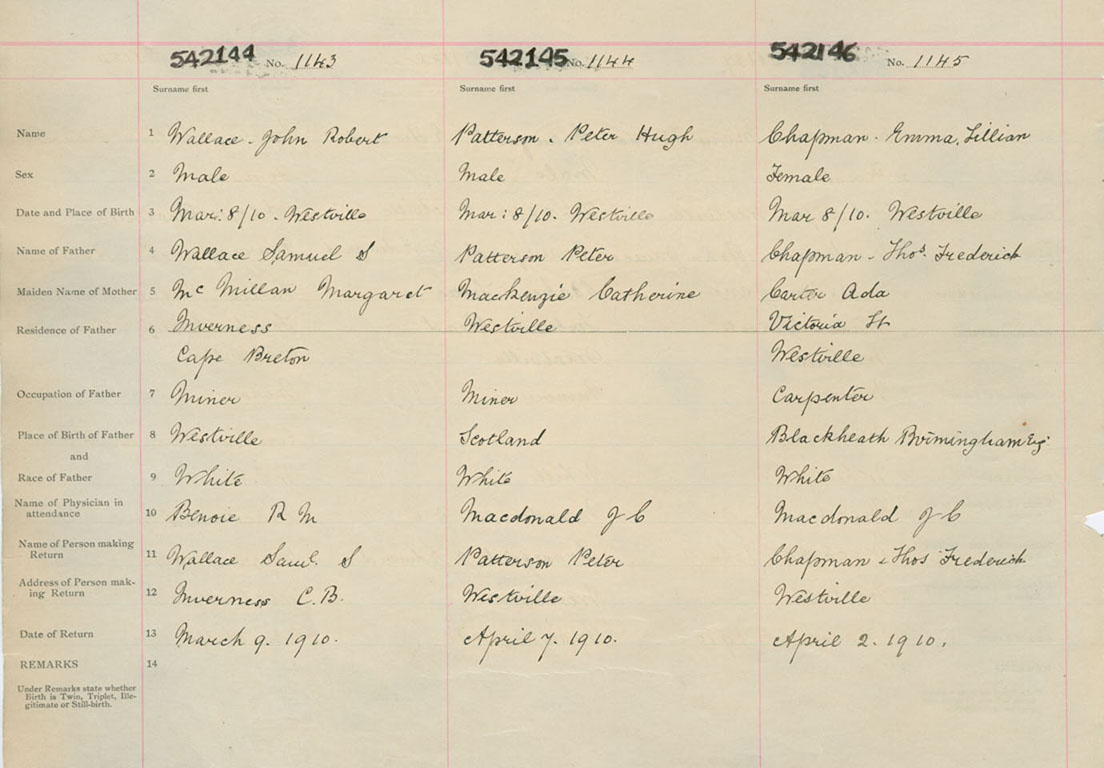 542144 No. 1143 542145 No. 1144 542146 No. 1145
Surname first Surname first Surname first
Name 1 Wallace. John Robert Patterson. Peter Hugh Chapman. Emma, Lillian
Sex 2 Male Male Female
Date and Place of Birth 3 Mar: 8/10. Westville Mar: 8/10. Westville Mar 8/10. Westville
Name of Father 4 Wallace Samuel S Patterson Peter Chapman - Thos. Frederick
Maiden Name of Mother 5 Mc Millan Margaret Mackenzie Catherine Carter Ada
Residence of Father 6 Inverness Westville Victoria St
Cape Breton Westville
Occupation of Father 7 Miner Miner Carpenter
Place of Birth of Father 8 Westville Scotland Blackheath Birmingham Eng.
and
Race of Father 9 White White White
Name of Physician in
attendance 10 Benoie R M Macdonald J C Macdonald J C
Name of Person making
Return 11 Wallace Saml. S Patterson Peter Chapman - Thos Frederick
Address of Person mak-
ing Return 12 Inverness C.B. Westville Westville
Date of Return 13 March 9. 1910. April 7. 1910. April 2. 1910.
REMARKS 14
Under Remarks state whether
Birth is Twin, Triplet, Ille-
gitimate or Still-birth.